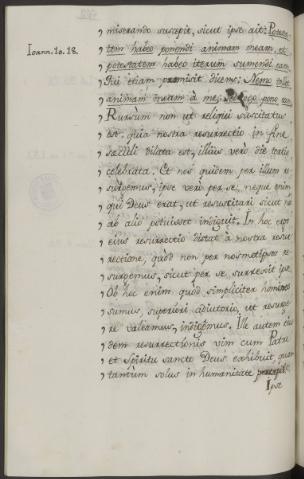 Joann. 10. 18.
miserando suscepit, sicut ipse ait: Potes-
tatem habeo ponendi animam meam, et
potestatem habeo iterum sumendi eam.
Qui etiam promisit dicens: Nemo tollit
animam meam à me, sed ego pono eam
Rursum non ut reliqui suscitatus
est, quia nostra resurrectio in fine
sæculi dilata est, illius verò die tertio
celebrata. Et nos quidem per illum re-
surgemus, ipse verò per se, neque enim
qui Deus erat, ut resuscitari sicut nos
ab alio potuisset indiguit. In hoc ergo
eius resurrectio distat à nostra resur
rectione, quòd non per nosmetipsos re-
surgemus, sicut per se, surrexit ipse.
Ob hoc enim quod simpliciter homines
sumus, superiori adiutorio, ut resurge-
re valeamus, indigemus. Ille autem eius
dem resurrectionis vim cum Patre
et Spiritu sancto Deus exhibuit, quam
tamen solus in humanitate percepit.
Ipse